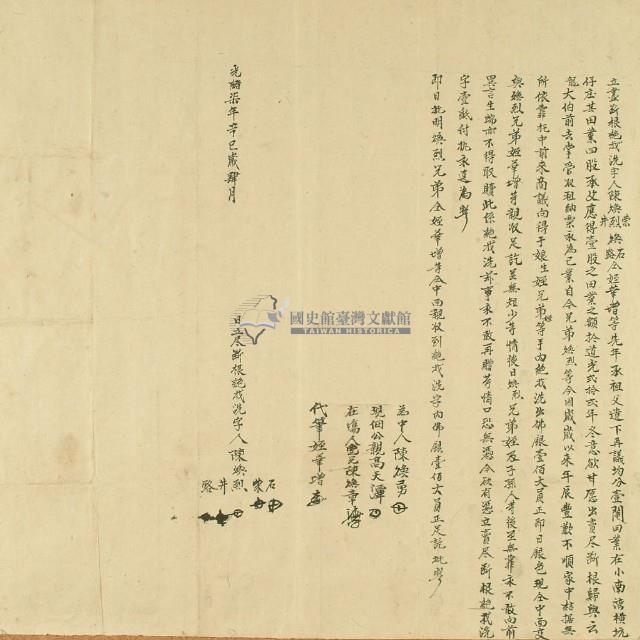 立盡斷根絕找洗字人陳煥烈煥仝姪華增等先年承祖父遺下再議均分壹鬮田業在小南灣橫坑
榮井石路
仔庄其田業四股承父應得壹股之田業之額於道光貳拾貳年冬意欲井愿出賣盡斷根歸與云
龍大伯前去掌管收租納票永為己業自今兄弟煥烈等今因歲歲以來年辰豐歉不順家中枯据無
所依靠托中前來商議向得于娘生姪兄弟等手內絕找洗出佛銀壹佰大員正即日銀色現仝中面交
與煥烈兄弟姪華增等親收足訖並無短少等情後日煥烈兄弟姪及子孫人等後並無靠永不敢向前
異言生端亦不得取贖此係絕找洗茹事永不敢再贈等情口恐無憑今欲有憑立賣尽斷根絕找洗
字壹紙付執永遠為炤
即日批明煥烈兄弟仝姪華增等仝中面親收到絕找洗字內佛銀壹佰大員正足訖批炤
為中人陳煥勇
現佃公親高天潭
在塲人陳煥章
代筆姪華增
光緒柒年辛巳歲肆月 日立尽斷根絕找洗字人陳煥烈
石
榮
井
路
國史館臺灣文獻館
TAIWAN HISTORICA